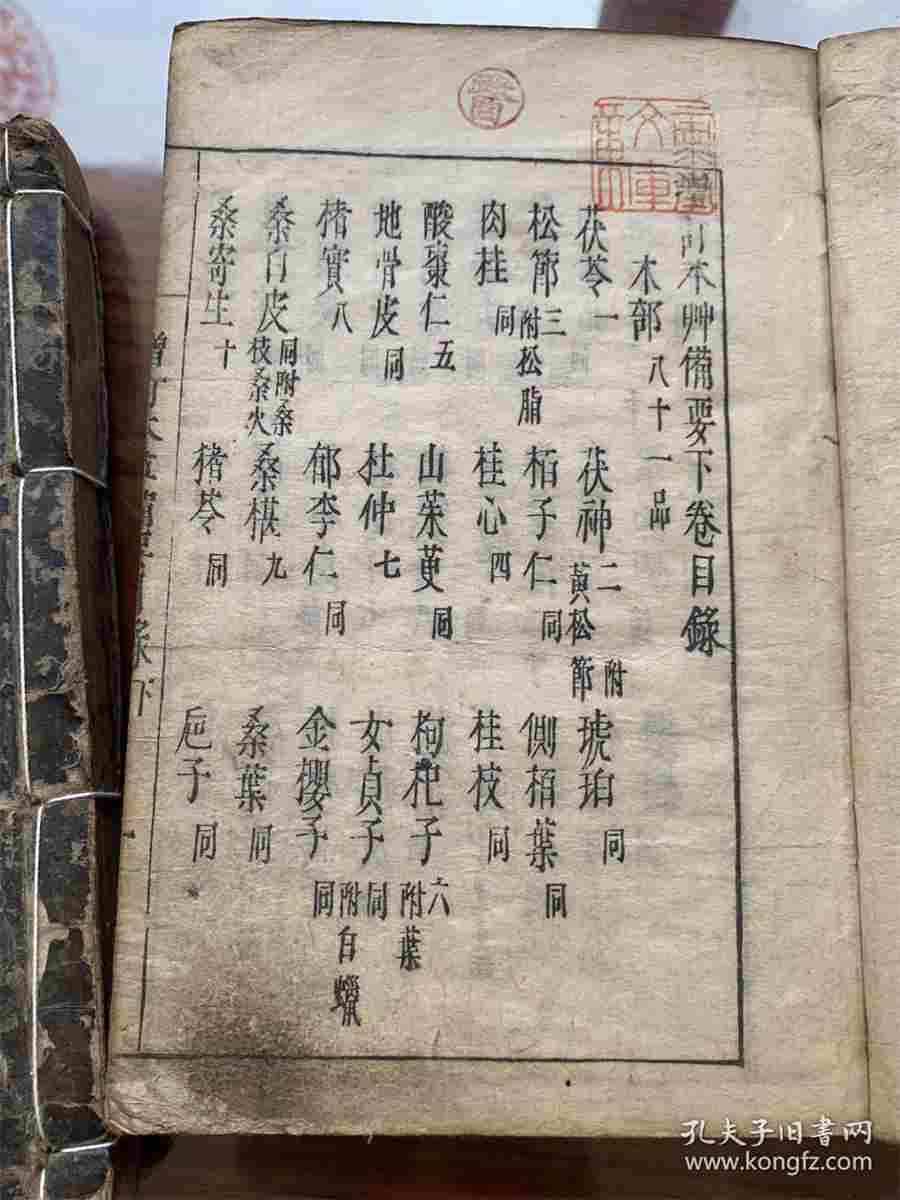 訂本艸備要下卷目錄
木部八十一品
茯苓一 茯神二附黄松節 琥珀同
松節三附松脂 栢子仁同 側栢葉同
肉桂同 桂心四 桂枝同
酸棗仁五 山茱萸同 枸杞子六附葉
地骨皮同 杜仲七 女貞子同附白蠟
楮實八 郁李仁同 金櫻子同
桑白皮同附桑枝桑火 桑椹九 桑葉同
桑寄生十 豬苓同 巵子同
孔夫子旧書网
www.kongfz.com